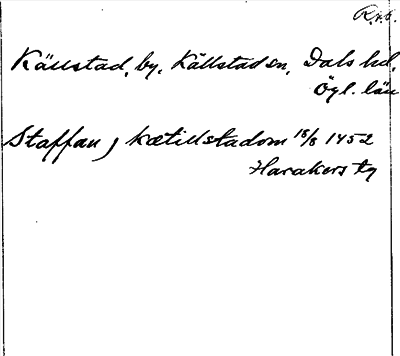 Källstad, by, Källstad sn, Dals hd,
Ögl. län
Staffan j kætillstadom 15/8 1452
Harakers ky